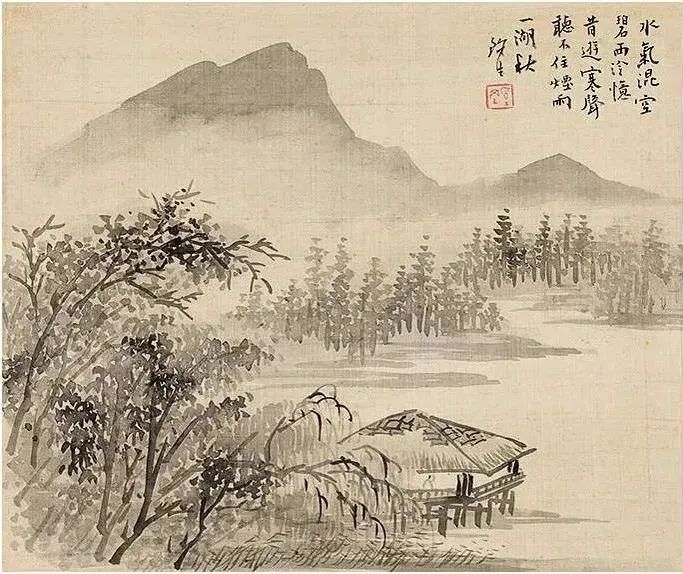 水氣混空
碧雨冷憶
昔遊寒聲
聽不住煙雨
一湖秋